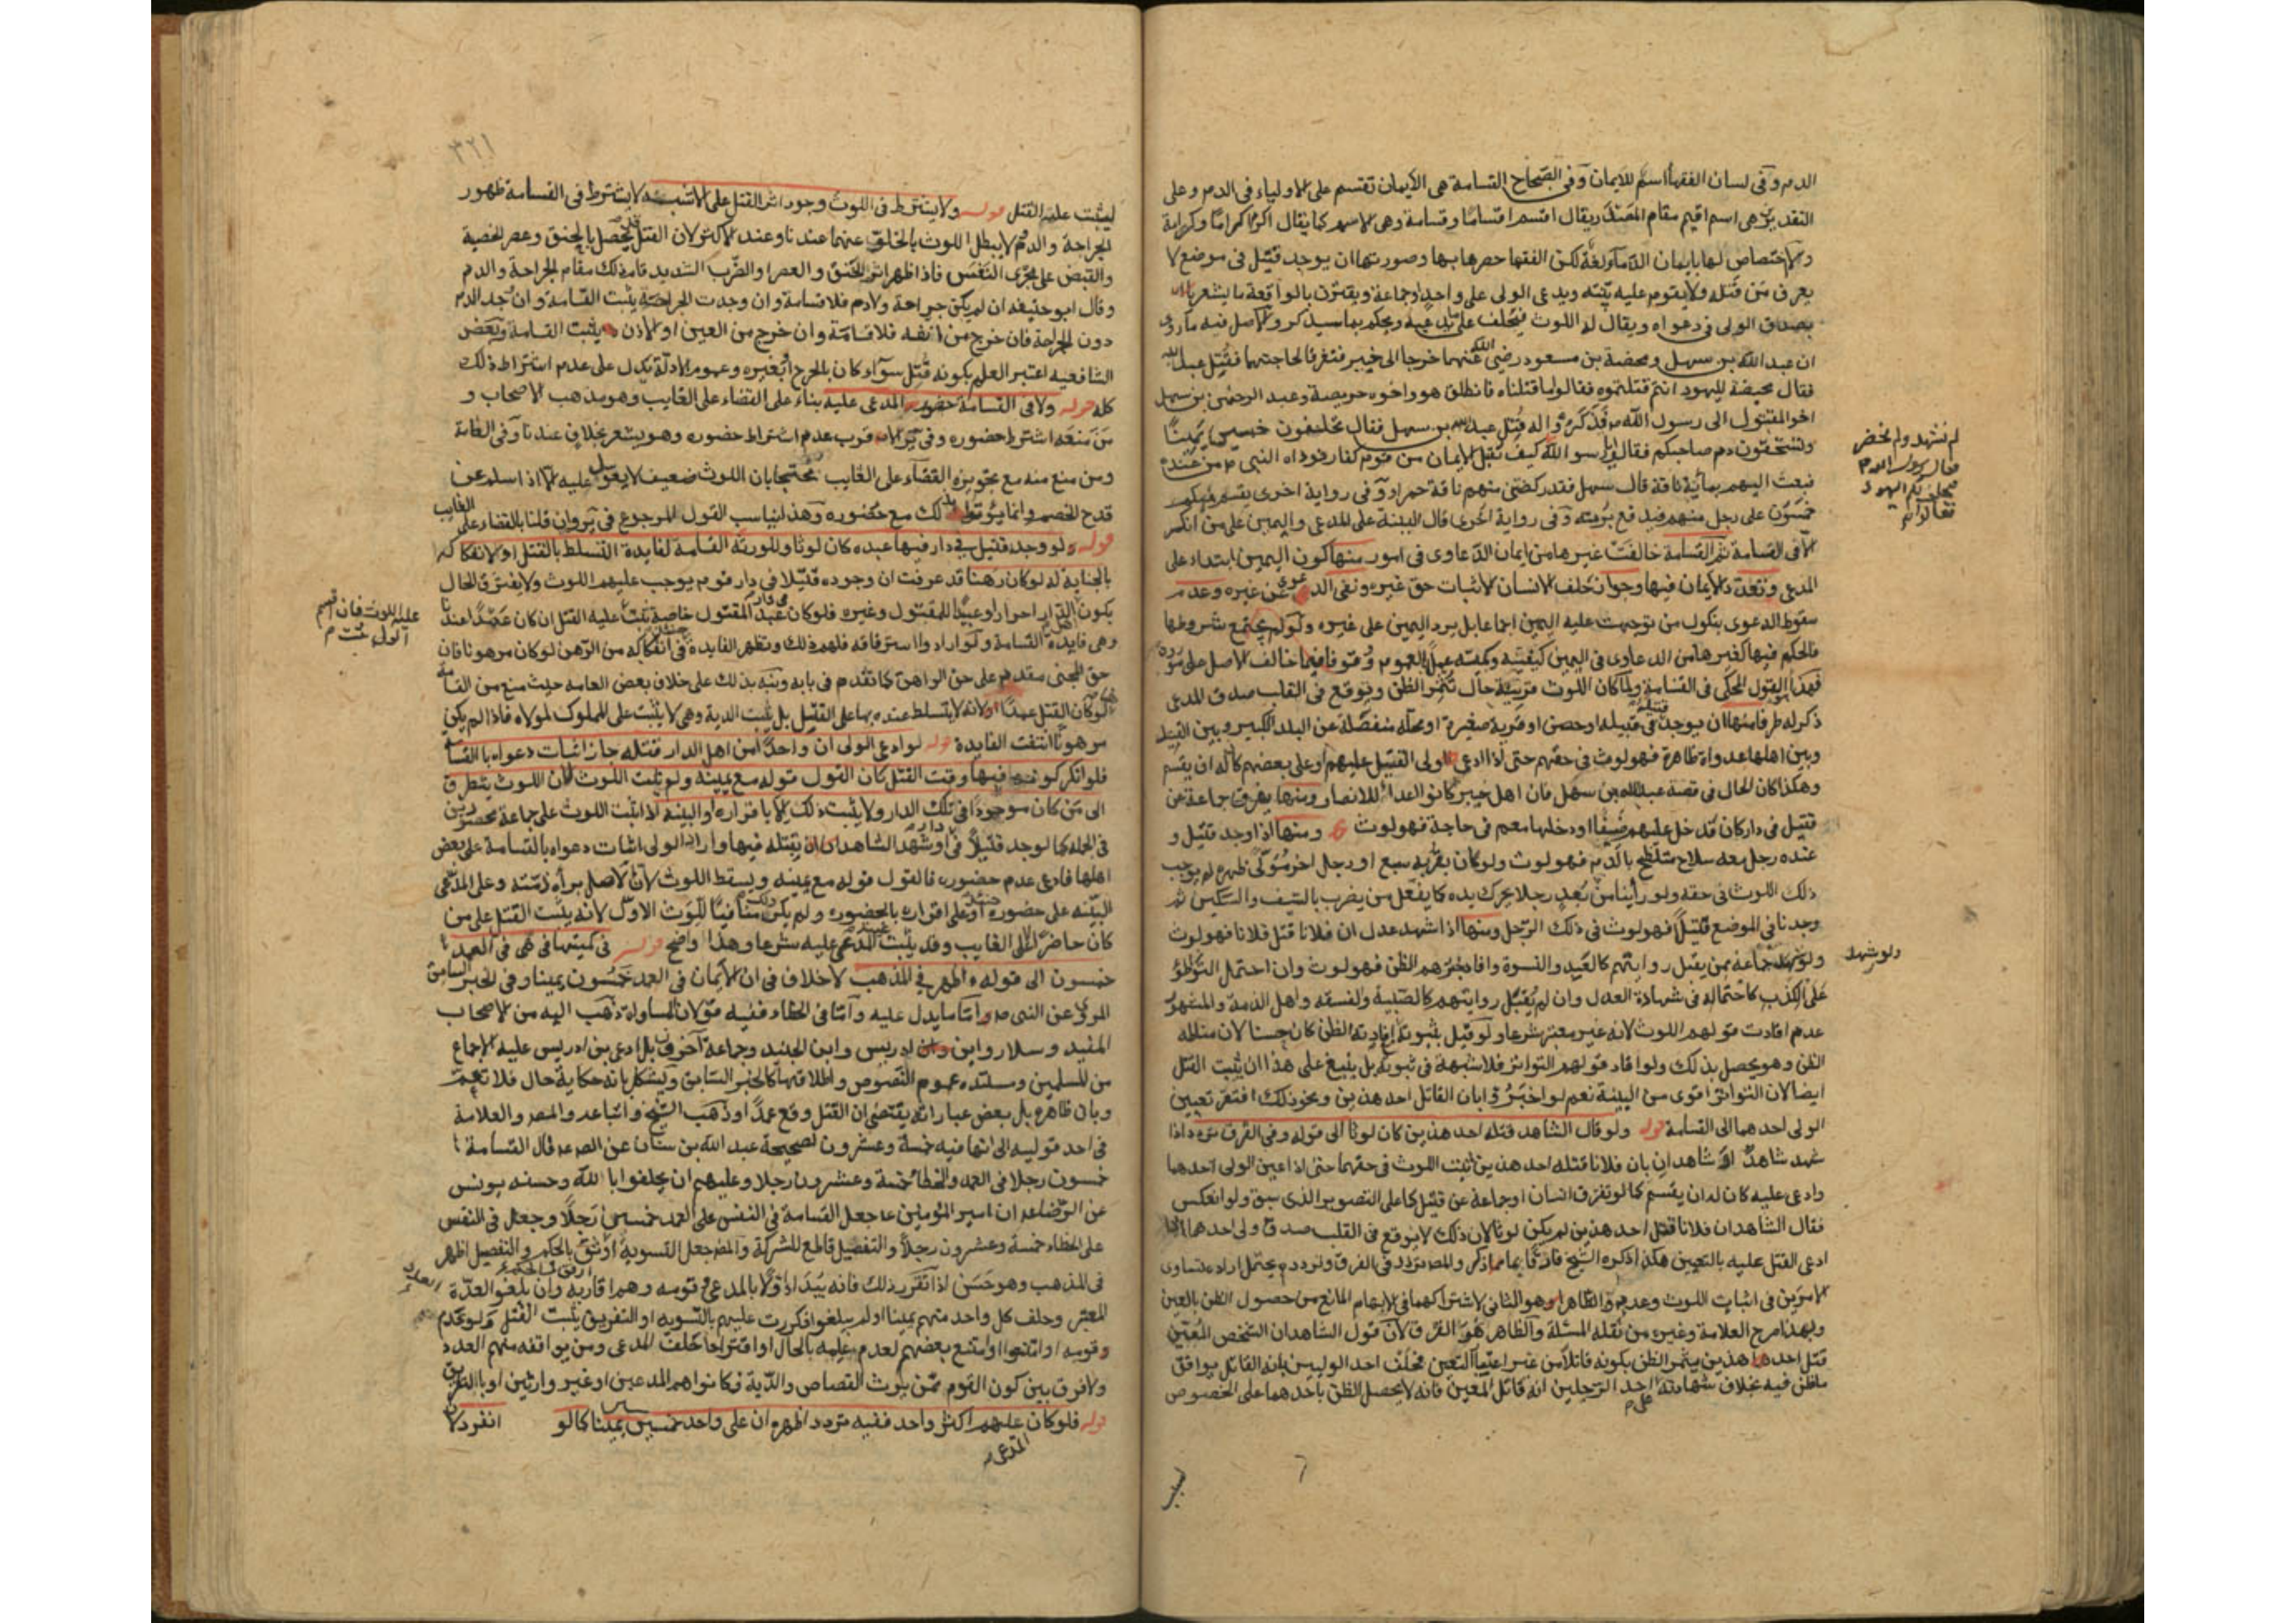 الدم وفى لسان الفقهاء اسم للايمان وفى الصحاح القسامة هى الايمان تقسم على الاولياء فى الدم وعلى
التقديرين هى اسم اقيم مقام المصدر يقال اقسم اقساما وقسامة وهى الاسم كما يقال اكرم اكراما وكرامة
ولا اختصاص لها بايمان الدماء لغة لكن الفقها خصوها بها وصورتها ان يوجد قتيل فى موضع لا
يعرف من قتله ولا يقوم عليه بينه ويدعى الولى على واحد او جماعة ويقترن بالواقعة ما يشعر
بصدق الولى فى دعواه ويقال له اللوث فيحلف على ما يدعيه ويحكم بما سيذكر والاصل فيه ما روى
ان عبد الله بن سهل ومحيصة بن مسعود رضى الله عنهما خرجا الى خيبر فتفرقا لحاجتهما فقتل عبد الله
فقال محيصة لليهود انتم قتلتموه فقالوا ما قتلناه فانطلق هو واخوه حويصة وعبد الرحمن بن سهل
اخو المقتول الى رسول الله ص فذكروا له قتل عبد الله بن سهل فقال تحلفون خمسين يمينا
وتستحقون دم صاحبكم فقالوا يا رسول الله كيف نقبل الايمان من قوم كفار فوداه النبى ص من عنده
فبعث اليهم بمائة ناقة قال سهل فقد ركضتنى منهم ناقة حمراء وفى رواية اخرى يقسم منكم
خمسون على رجل منهم فيدفع برمته وفى رواية اخرى قال البينة على المدعى واليمين على من انكر
الا فى القسامة ثم القسامة خالفت غيرها من ايمان الدعاوى فى امور منها كون اليمين ابتداء على
المدعى وتعدد الايمان فيها وجواز حلف الانسان لاثبات حق غيره ونفى الدعوى عن غيره وعدم
سقوط الدعوى بنكول من توجهت عليه اليمين اجماعا بل يرد اليمين على غيره ولو لم يجتمع شروطها
فالحكم فيها كغيرها من الدعاوى فى اليمين كيفيته وكميته عملا بالعموم وقوفا فيما خالف الاصل على مورده
القول المحكى فى القسامة ولما كان اللوث قرينة حال تثمر الظن ويوقع فى القلب صدق المدعى
ذكر له طرقا منها ان يوجد قتيل فى قبيله او حصن او قرية صغيرة او محله منفصلة عن البلد الكبير وبين القتيل
وبين اهلها عداوة ظاهرة فهو لوث فى حقهم حتى اذا ادعى الولى القتيل عليهم او على بعضهم كان له ان يقسم
وهكذا كان الحال فى قصة عبد الله بن سهل فان اهل خيبر كانوا اعداء للانصار ومنها تفرق جماعة عن
قتيل فى دار كان قد دخل عليهم ضيفا او دخلها معهم فى حاجة فهو لوث ومنها اذا وجد قتيل و
عنده رجل معه سلاح متلطخ بالدم فهو لوث ولو كان بقربه سبع او رجل اخر مولى ظهره لم يوجب
ذلك اللوث فى حقه ولو راينا من بعد رجلا يحرك يده كما يفعل من يضرب بالسيف والسكين ثم
وجدنا فى الموضع قتيلا فهو لوث فى ذلك الرجل ومنها اذا شهد عدل ان فلانا قتل فلانا فهو لوث
ولو شهد جماعة ممن يقبل روايتهم كالعبيد والنسوة وافاد خبرهم الظن فهو لوث وان احتمل التواطؤ
على الكذب كاحتماله فى شهادة العدل وان لم يقبل روايتهم كالصبية والفسقه واهل الذمة والمشهور
عدم افادت قولهم اللوث لانه غير معتبر شرعا ولو قيل بثبوته افادته الظن كان حسنا لان مناطه
الظن وهو يحصل بذلك ولو افاد قولهم التواتر فلا شبهة فى ثبوته بل ينبغى على هذا ان يثبت القتل
ايضا لان التواتر اقوى من البينة نعم لو اخبروا بان القاتل احد هذين ونحو ذلك افتقر تعيين
الولى احدهما الى القسامة قوله ولو قال الشاهد قتله احد هذين كان لوثا الى قوله وفى الفرق تردد اذا
شهد شاهد او شاهدان بان فلانا قتله احد هذين ثبت اللوث فى حقهما حتى اذا عين الولى احدهما
وادعى عليه كان له ان يقسم كما لو تفرق انسان او جماعة عن قتيل كما على التصوير الذى سبق ولو انعكس
فقال الشاهدان فلانا قتل احد هذين لم يكن لوثا لان ذلك لا يوقع فى القلب صدق ولى احدهما اذا
ادعى القتل عليه بالتعيين هكذا ذكره الشيخ فارقا بما ذكر والمص تردد فى الفرق وتردده يحتمل اراده تساوى
الامرين فى اثبات اللوث وعدمه والظاهر هو الثانى لاشتراكهما فى الابهام المانع من حصول الظن بالعين
وبهذا صرح العلامة وغيره من نقله المسئلة والظاهر هو الفرق لان قول الشاهدان الشخص المعين
قتل احد هذين يثمر الظن بكونه قاتلا من غير اعتبار التعين فحلف احد الوليين بانه القاتل يوافق
ما ظن فيه بخلاف شهادته احد الرجلين انه قاتل المعين فانه لا يحصل الظن باحدهما على الخصوص
لم نشهد ولم نحضر
فقال رسول الله ص
فيحلف لكم اليهود
فقالوا
ولو شهد
٣٢١
ليثبت عليه القتل قوله ولا يشترط فى اللوث وجود اثر القتل على الاشبه لا يشترط فى القسامة ظهور
الجراحة والدم ولا يبطل اللوث بالخلو عنهما عندنا وعند الاكثر لان القتل يحصل بالخنق وعصر الخصية
والقبض على مجرى النفس فاذا ظهر اثر الخنق والعصر او الضرب الشديد قام ذلك مقام الجراحة والدم
وقال ابو حنيفه ان لم يكن جراحة ولا دم فلا قسامة وان وجدت الجراحة يثبت القسامة وان وجد الدم
دون الجراحة فان خرج من انفه فلا قسامة وان خرج من العين او الاذن يثبت القسامة وبعض
الشافعيه اعتبر العلم بكونه قتل سواء كان بالجرح او بغيره وعموم الادلة يدل على عدم اشتراط ذلك
كله قوله ولا فى القسامة حضور المدعى عليه بناء على القضاء على الغايب وهو مذهب الاصحاب و
من منعه اشترط حضوره وفى قرب عدم اشتراط حضوره وهو يشعر بخلاف عندنا وفى العامة
ومن منع منه مع تجويزه القضاء على الغايب محتجا بان اللوث ضعيف لا يعول عليه الا اذا سلم عن
قدح الخصم وانما يوثق بذلك مع حضوره وهذا يناسب القول المرجوع فى وان قلنا بالقضاء على الغايب
قوله ولو وجد قتيل فى دار فيها عبده كان لوثا وللورثة القسامة لفايدة التسلط بالقتل او لافتكاكه
بالجناية له لو كان رهنا قد عرفت ان وجوده قتيلا فى دار قوم يوجب عليهم اللوث ولا يفترق الحال
بكون اهل الدار احرارا او عبيدا للمقتول وغيره فلو كان فى دار عبد المقتول خاصة ثبت عليه القتل ان كان عمدا عندنا
وهى فايدة القسامة ولو ارادوا استرقاقه فلهم ذلك وتظهر الفايدة فى افتكاكه من الرهن لو كان مرهونا فان
حق المجنى مقدم على حق الراهن كما تقدم فى بابه ونبه بذلك على خلاف بعض العامه حيث منع من القسامة
لو كان القتل عمدا لانه لا يتسلط عنده بها على القتل بل يثبت الدية وهى لا يثبت على المملوك لمولاه فاذا لم يكن
مرهونا انتفت الفايدة قوله لو ادعى الولى ان واحدا من اهل الدار قتله جاز اثبات دعواه بالقسامة
فلو انكر كونه فيها وقت القتل كان القول قوله مع يمينه ولم يثبت اللوث لان اللوث يتطرق
الى من كان موجودا فى تلك الدار ولا يثبت ذلك الا باقراره او البينه اذا ثبت اللوث على جماعة محصورين
فى الجمله كما لو وجد قتيل فى دار او شهد الشاهدان بقتله فيها واراد الولى اثبات دعواه بالقسامة على بعض
اهلها فادعى عدم حضوره فالقول قوله مع يمينه ويسقط اللوث لان الاصل براءة ذمته وعلى المدعى
البينه على حضوره او على اقراره بالحضور ولم يكن ذلك منافيا للوث الاول لانه يثبت القتل على من
كان حاضرا لا على الغايب وقد يثبت المدعى عليه شرعا وهذا واضح قوله فى كميتها فى العمد
خمسون الى قوله اظهر فى المذهب لا خلاف فى ان الايمان فى العمد خمسون يمينا وفى الخبر السابق
المروى عن النبى ص ما يدل عليه واما فى الخطاء ففيه قولان المساواة ذهب اليه من الاصحاب
المفيد وسلار وابن ادريس وابن الجنيد وجماعة آخرون بل ادعى بن ادريس عليه الاجماع
من المسلمين ومستنده عموم النصوص واطلاقها كالخبر السابق ويشكل بانه حكاية حال فلا تعم
وبان ظاهره بل بعض عباراته يقتضى ان القتل وقع عمدا وذهب الشيخ واتباعه والمص والعلامة
فى احد قوليه الى انها فيه خمسة وعشرون لصحيحة عبد الله بن سنان عن الص ع قال القسامة
خمسون رجلا فى العمد والخطا خمسة وعشرون رجلا وعليهم ان يحلفوا بالله وحسنه يونس
عن الرضا ع ان امير المؤمنين ع جعل القسامة فى النفس على العمد خمسين رجلا وجعل فى النفس
على الخطاء خمسة وعشرون رجلا والتفصيل قاطع للشركة والمص جعل التسوية اوثق بالحكم والتفصيل اظهر
فى المذهب وهو حسن اذا تقرر ذلك فانه يبدا اولا بالمدعى وقومه وهم اقاربه وان بلغوا العدة
المعتبر وحلف كل واحد منهم يمينا او لم يبلغوا فكررت عليهم بالتسويه او التفريق يثبت القتل ولو عدم
قومه او امتنعوا او امتنع بعضهم لعدم علمه بالحال او اقتراحا حلف المدعى ومن يوافقه منهم العدد
ولا فرق بين كون القوم ممن يرث القصاص والدية فكانوا هم المدعين او غير وارثين او بالتفريق
قوله فلو كان عليهم اكثر واحد ففيه تردد اظهره ان على واحد خمسين يمينا كما لو انفرد
المدعى